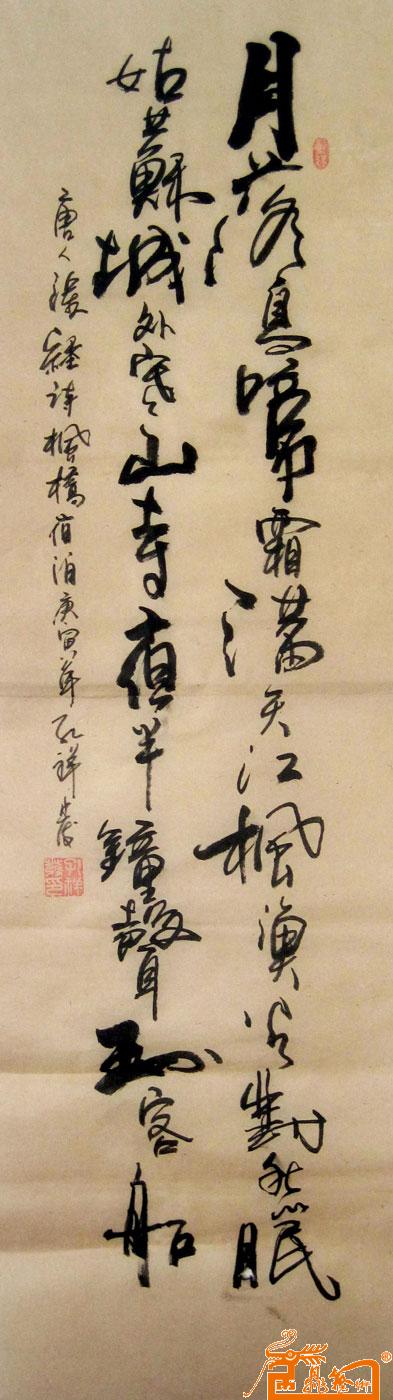 月落烏啼霜滿天江楓漁火對愁眠
姑蘇城外寒山寺夜半鐘聲到客船
唐人張継詩楓橋宿泊庚寅年孔祥